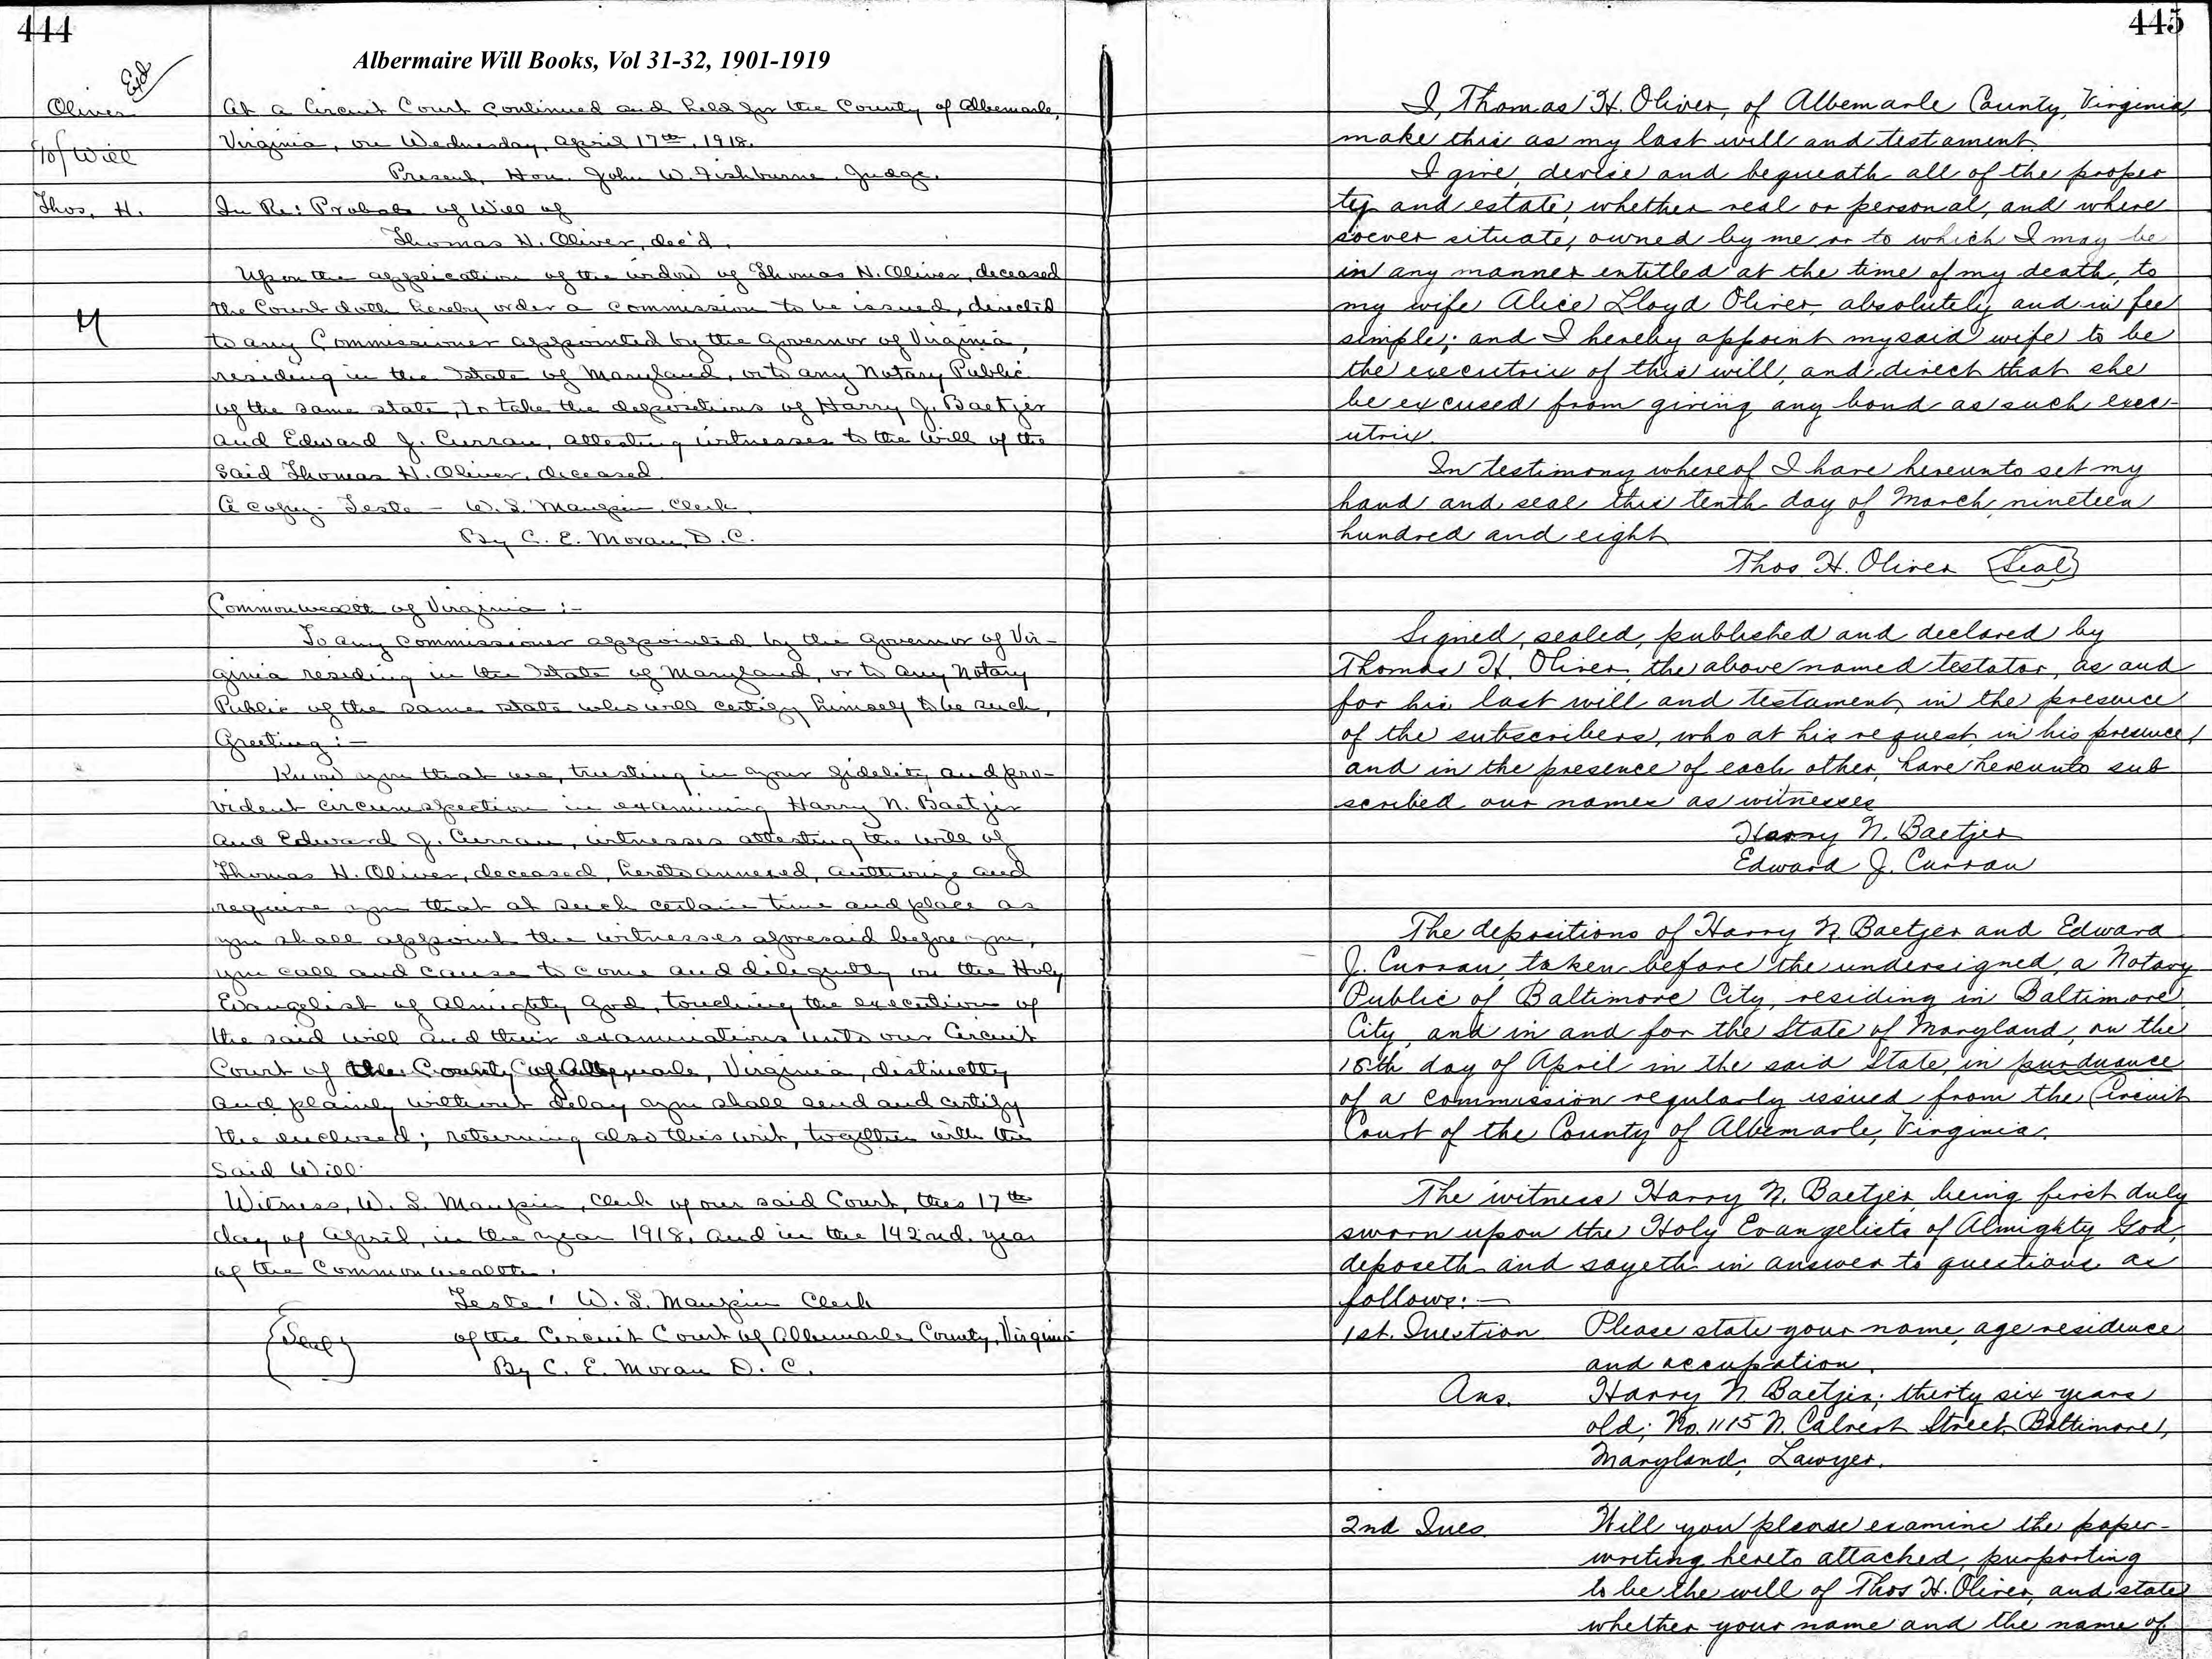 444
Albermaire Will Books, Vol 31-32, 1901-1919
Exd
Oliver
of Will
Thos, H.
At a Circuit Court continued and held for the County of Albemarle,
Virginia, on Wednesday, April 17th, 1918.
Present, Hon. John W. Fishburne, Judge.
In Re: Probate of Will of
Thomas H. Oliver, dec'd.
Upon the application of the widow of Thomas H. Oliver, deceased
the Court doth hereby order a commission to be issued, directed
to any Commissioner appointed by the Governor of Virginia,
residing in the State of Maryland, or to any Notary Public
of the same state, to take the depositions of Harry J. Baetjer
and Edward J. Curran, attesting witnesses to the will of the
said Thomas H. Oliver, deceased.
A copy - Teste - W. L. Maupin, Clerk,
By C. E. Moran, D. C.
Commonwealth of Virginia :-
To any commissioner appointed by the Governor of Vir-
ginia residing in the State of Maryland, or to any Notary
Public of the same state who will certify himself to be such,
Greeting :-
Know you that we, trusting in your fidelity and pro-
vident circumspection in examining Harry N. Baetjer
and Edward J. Curran, witnesses attesting the will of
Thomas H. Oliver, deceased, hereto annexed, authorize and
require you that at such certain time and place as
you shall appoint the witnesses aforesaid before you,
you call and cause to come and diligently on the Holy
Evangelist of Almighty God, touching the execution of
the said will and their examinations unto our Circuit
Court of the County of Albemarle, Virginia, distinctly
and plainly without delay you shall send and certify
the enclosed; returning also this writ, together with the
said Will.
Witness, W. L. Maupin, Clerk of our said Court, this 17th
day of April, in the year 1918, and in the 142nd. year
of the Commonwealth.
Teste: W. L. Maupin Clerk
{Seal} of the Circuit Court of Albemarle County, Virginia
By C. E. Moran D. C.
445
I, Thomas H. Oliver, of Albemarle County, Virginia,
make this as my last will and testament.
I give, devise and bequeath all of the proper
ty and estate, whether real or personal, and where
soever situate, owned by me, or to which I may be
in any manner entitled at the time of my death, to
my wife Alice Lloyd Oliver, absolutely and in fee
simple; and I hereby appoint my said wife to be
the executrix of this will, and direct that she
be excused from giving any bond as such exec-
utrix.
In testimony whereof I have hereunto set my
hand and seal this tenth day of March, nineteen
hundred and eight
Thos H. Oliver (Seal)
Signed, sealed, published and declared by
Thomas H. Oliver, the above named testator, as and
for his last will and testament, in the presence
of the subscribers, who at his request, in his presence,
and in the presence of each other, have hereunto sub
scribed our names as witnesses
Harry N. Baetjer
Edward J. Curran
The depositions of Harry N. Baetjer and Edward
J. Curran taken before the undersigned, a Notary
Public of Baltimore City, residing in Baltimore
City, and in and for the State of Maryland, on the
18th day of April in the said State, in pursuance
of a commission regularly issued from the Circuit
Court of the County of Albemarle, Virginia.
The witness Harry N. Baetjer, being first duly
sworn upon the Holy Evangelists of Almighty God,
deposeth and sayeth in answer to questions as
follows:-
1st. Question Please state your name, age residence
and occupation.
Ans. Harry N Baetjer; thirty six years
old; No. 1115 N. Calvert Street, Baltimore,
Maryland; Lawyer.
2nd Ques. Will you please examine the paper-
writing hereto attached, purporting
to be the will of Thos H. Oliver, and state
whether your name and the name of